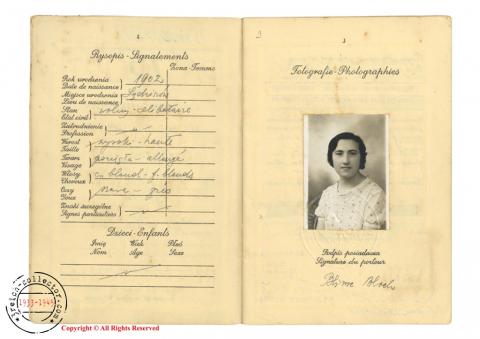 Rysopis-Signalements
Żona-Femme
Rok urodzenia
Date de naissance
1902
Miejsce urodzenia
Lieu de naissance
Stan
Etat civil
wolny - célibataire
Zatrudnienie
Profession
Wzrost
Taille
wysoki - haute
Twarz
Visage
Włosy
Cheveux
Oczy
Yeux
Znaki szczególne
Signes particuliers
Dzieci-Enfants
Imię Wiek Płeć
Nom Age Sexe
3
Fotografie-Photographies
Podpis posiadacza
Signature du porteur
Bloch
ireico-collector.com
1933-1945
Copyright © All Rights Reserved